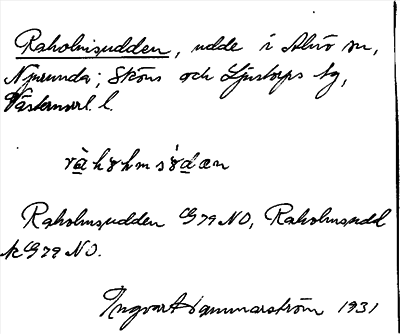 Raholmsudden, udde i Alnö sn,
Njurunda; Sköns och Ljustorps tg,
Västernorrl. l.
Raholmsudden G79 NO, Raholmsudd
k G79 NO.
Ingvar Hammarström 1931